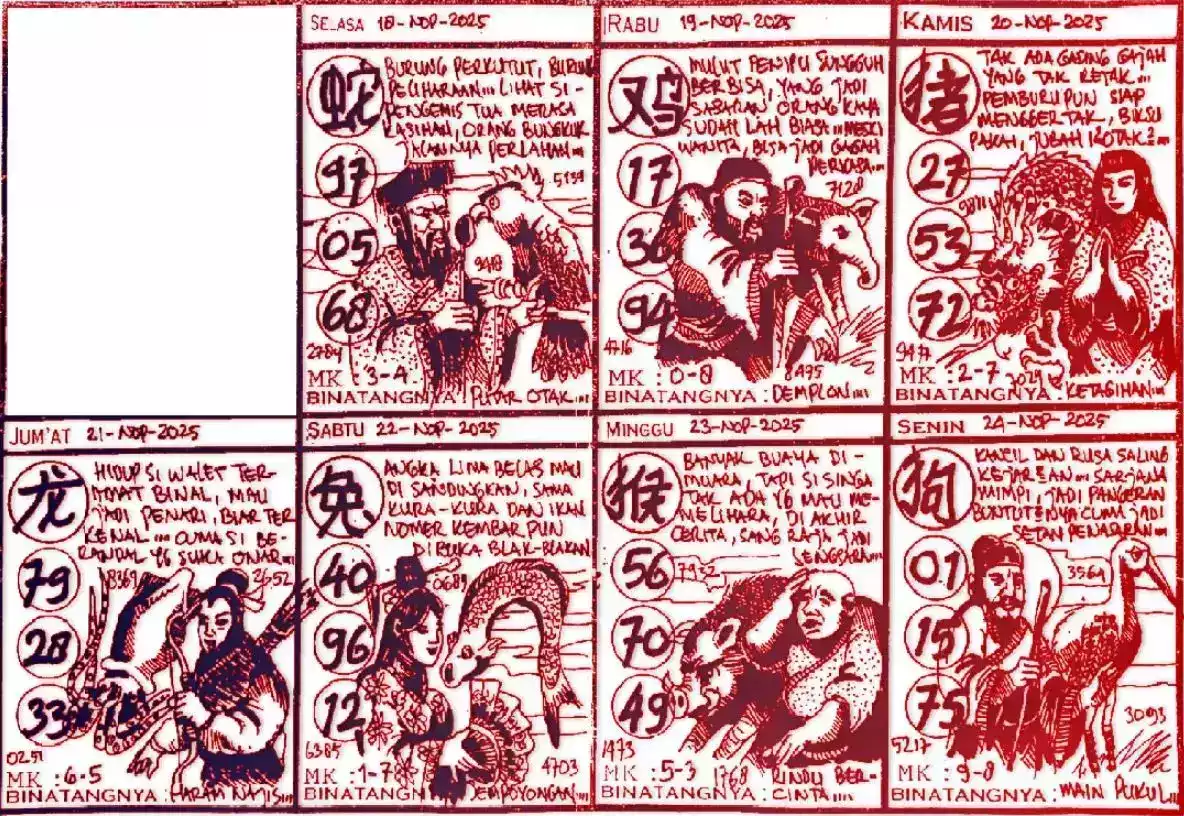 SELASA 18-NOP-2025
蛇
BURUNG PERKUTUT, BURUNG
PELIHARAAN... LIHAT SI-
PENGEMIS TUA MERASA
KASIHAN, ORANG BUNGKUK
JALANNYA PERLAHAN...
97
05
68
5139
2784
MK : 3-4
BINATANGNYA : PUTAR OTAK...
RABU 19-NOP-2025
鸡
MULUT PENIPU SUNGGUH
BERBISA, YANG JADI
SASARAN ORANG KAYA
SUDAH LAH BIASA... MESKI
WANITA, BISA JADI GAGAH
PERKASA...
17
36
94
7128
4716
8495
MK : 0-8
BINATANGNYA : DEMPLON...
KAMIS 20-NOP-2025
猪
TAK ADA GADING GAJAH
YANG TAK RETAK...
PEMBURU PUN SIAP
MENGGERTAK, BIKSU
PAKAI, JUBAH KOTAK2...
27
53
72
MK : 2-7
BINATANGNYA : KETAGIHAN...
JUM'AT 21-NOP-2025
龙
HIDUP SI WALET TER-
AMAT BINAL, MAU
JADI PENARI, BIAR TER
KENAL... CUMA SI BE-
RANDAL YG SUKA ONAR...
79
28
33
8369
2652
0251
MK : 6-5
BINATANGNYA : HARAM NAJIS...
SABTU 22-NOP-2025
兔
ANGKA LIMA BELAS MAU
DI SANDINGKAN, SAMA
KURA-KURA DAN IKAN
NOMER KEMBAR PUN
DIBUKA BLAK-BLAKAN
40
96
12
0689
6385
4703
MK : 1-7
BINATANGNYA : SEMPOYONGAN...
MINGGU 23-NOP-2025
猴
BANYAK BUAYA DI-
MUARA, TAPI SI SINGA
TAK ADA YG MAU ME-
MELIHARA, DI AKHIR
CERITA, SANG RAJA JADI
SENGSARA...
56
70
49
7932
1473
1768
MK : 5-3
BINATANGNYA : RINDU BER-
CINTA...
SENIN 24-NOP-2025
狗
KANCIL DAN RUSA SALING
KEJAR2AN... SARJANA
MIMPI, JADI PANGERAN
BUNTUT2NYA CUMA JADI
SETAN PENASARAN...
01
15
75
3564
3093
5217
MK : 9-8
BINATANGNYA : MAIN PUKUL...